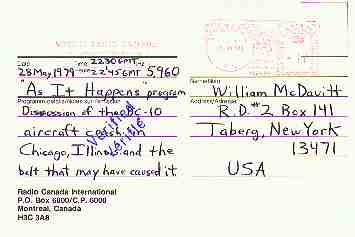 Date
28 May 1979
Time
2230 GMT
2245 GMT
5,960
"As It Happens" program
Discussion of the DC-10
aircraft crash in
Chicago, Illinois and the
bolt that may have caused it.
Verified
Vérifié
Radio Canada International
P.O. Box 6000/C.P. 6000
Montreal, Canada
H3C 3A8
Name/Nom
William McDavitt
Address/Adresse
R.D. #2 Box 141
Taberg, New York
13471
USA